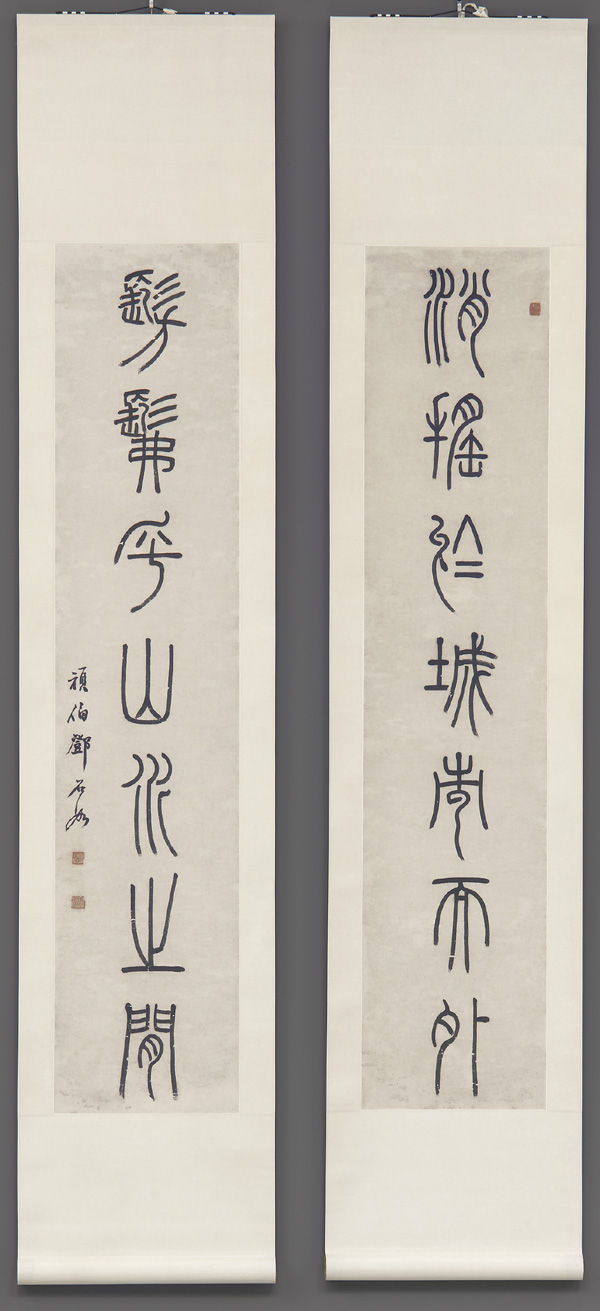 消搖於城市而外
髣髴乎山水之閒
頑伯鄧石如